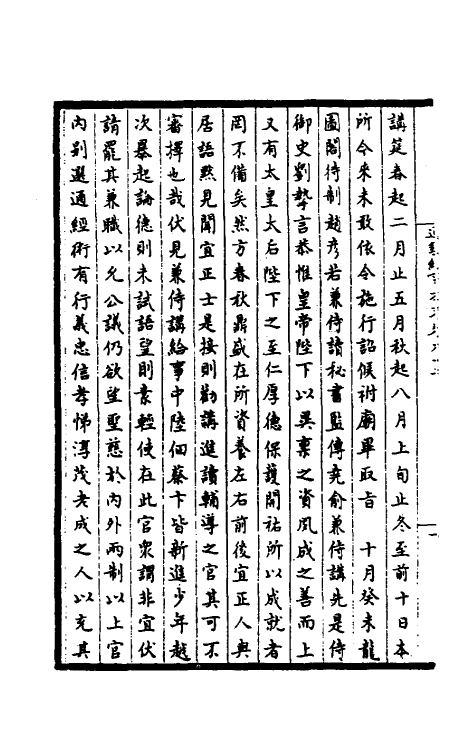 講筵春起二月止五月秋起八月上旬止冬至前十日本
所今來未敢依令施行詔候祔廟畢取旨　十月癸未龍
圖閣待制趙彥若兼侍讀秘書監傅堯俞兼侍講先是侍
御史劉摯言恭惟皇帝陛下以異稟之資夙成之善而上
又有太皇太后陛下之至仁厚德保護開祐所以成就者
罔不備矣然方春秋鼎盛在所資養左右前後宜正人與
居語點見聞宜正士是接則勸講進讀輔導之官其可不
審擇也哉伏見兼侍講給事中陸佃蔡卞皆新進少年越
次暴起論德則未試語望則素輕使在此官衆謂非宜伏
請罷其兼職以允公議仍欲望聖慈於內外兩制以上官
內別選通經術有行義忠信孝悌淳茂老成之人以充其